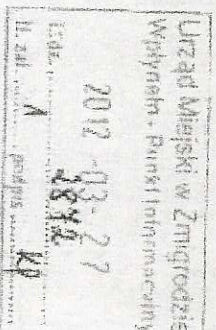 Urząd Miejski w Żmigrodzie
Wpłynęło - Punkt Informacyjny
2012 -03- 2 7
L.dz.
Il. zał. podpis